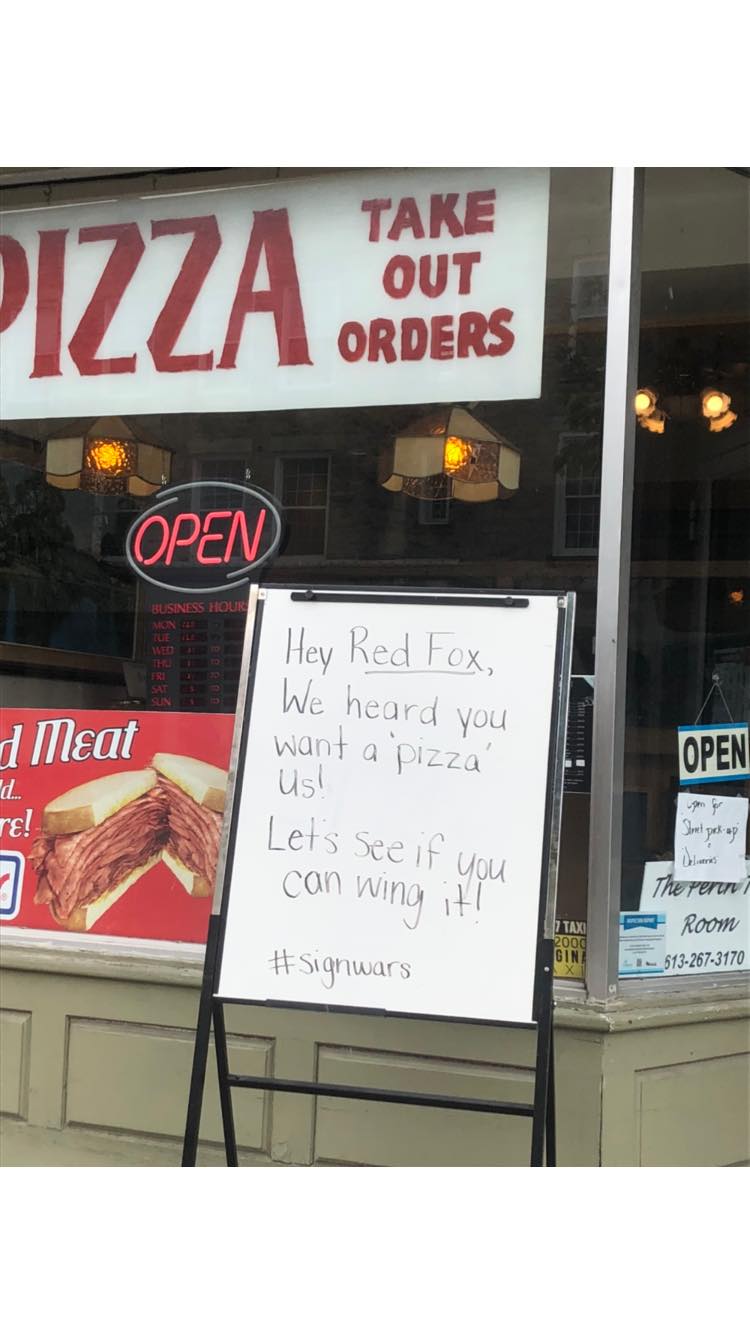 PIZZA
TAKE
OUT
ORDERS
OPEN
BUSINESS HOURS
MON
TUE
WED
THU
FRI
SAT
SUN
d Meat
d...
re!
Hey Red Fox,
We heard you
want a 'pizza'
Us!
Let's see if you
can wing it!
#signwars
OPEN
Deliveries
The Perth
Room
613-267-3170
TAXI